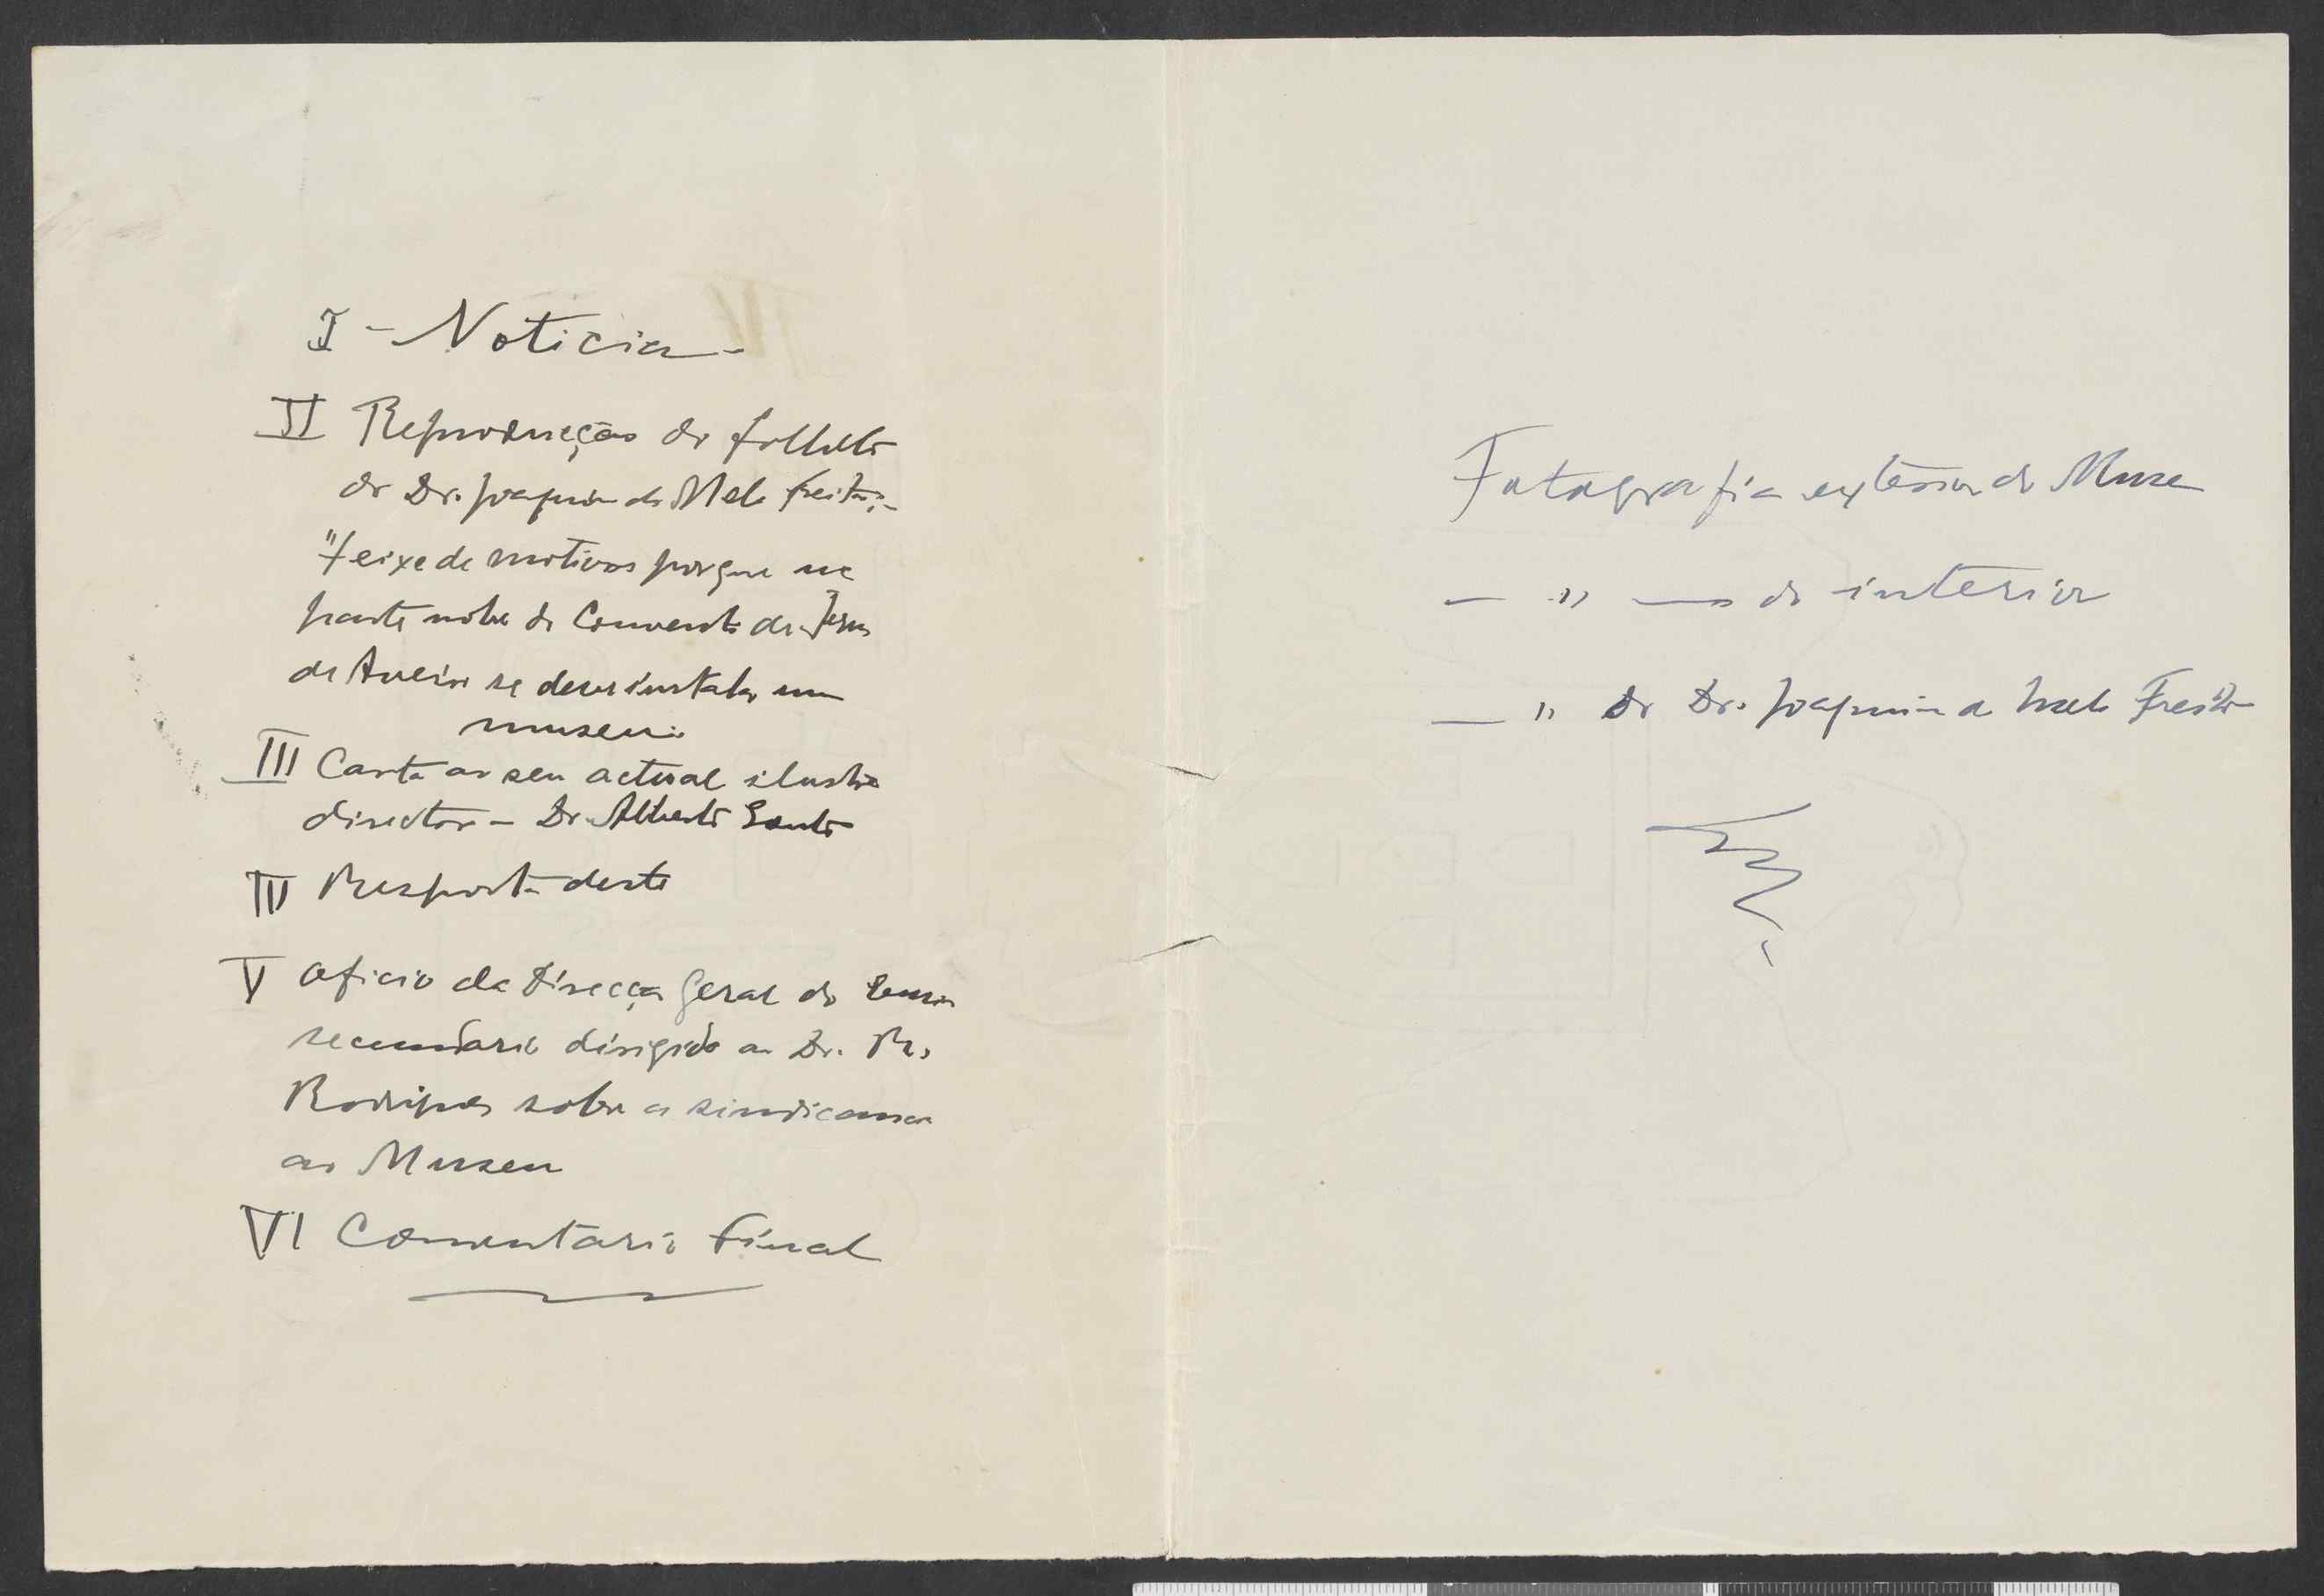 I - Noticia -
II Reprodução do folheto
do Dr. Joaquim de Melo Freitas:-
"Feixe de motivos porque na
parte nobre do Convento de Jesus
de Aveiro se deve instalar um
museu:
III Carta ao seu actual ilustre
director - Dr. Alberto Souto
IV Resposta deste
V Oficio da Direcção Geral do Ensino
secundario dirigido ao Dr. R.
Rodrigues sobre a sindicancia
ao Museu
VI Comentario Final
Fotografia exterior do Museu
— " — do interior
— " Dr Dr. Joaquim de Melo Freitas